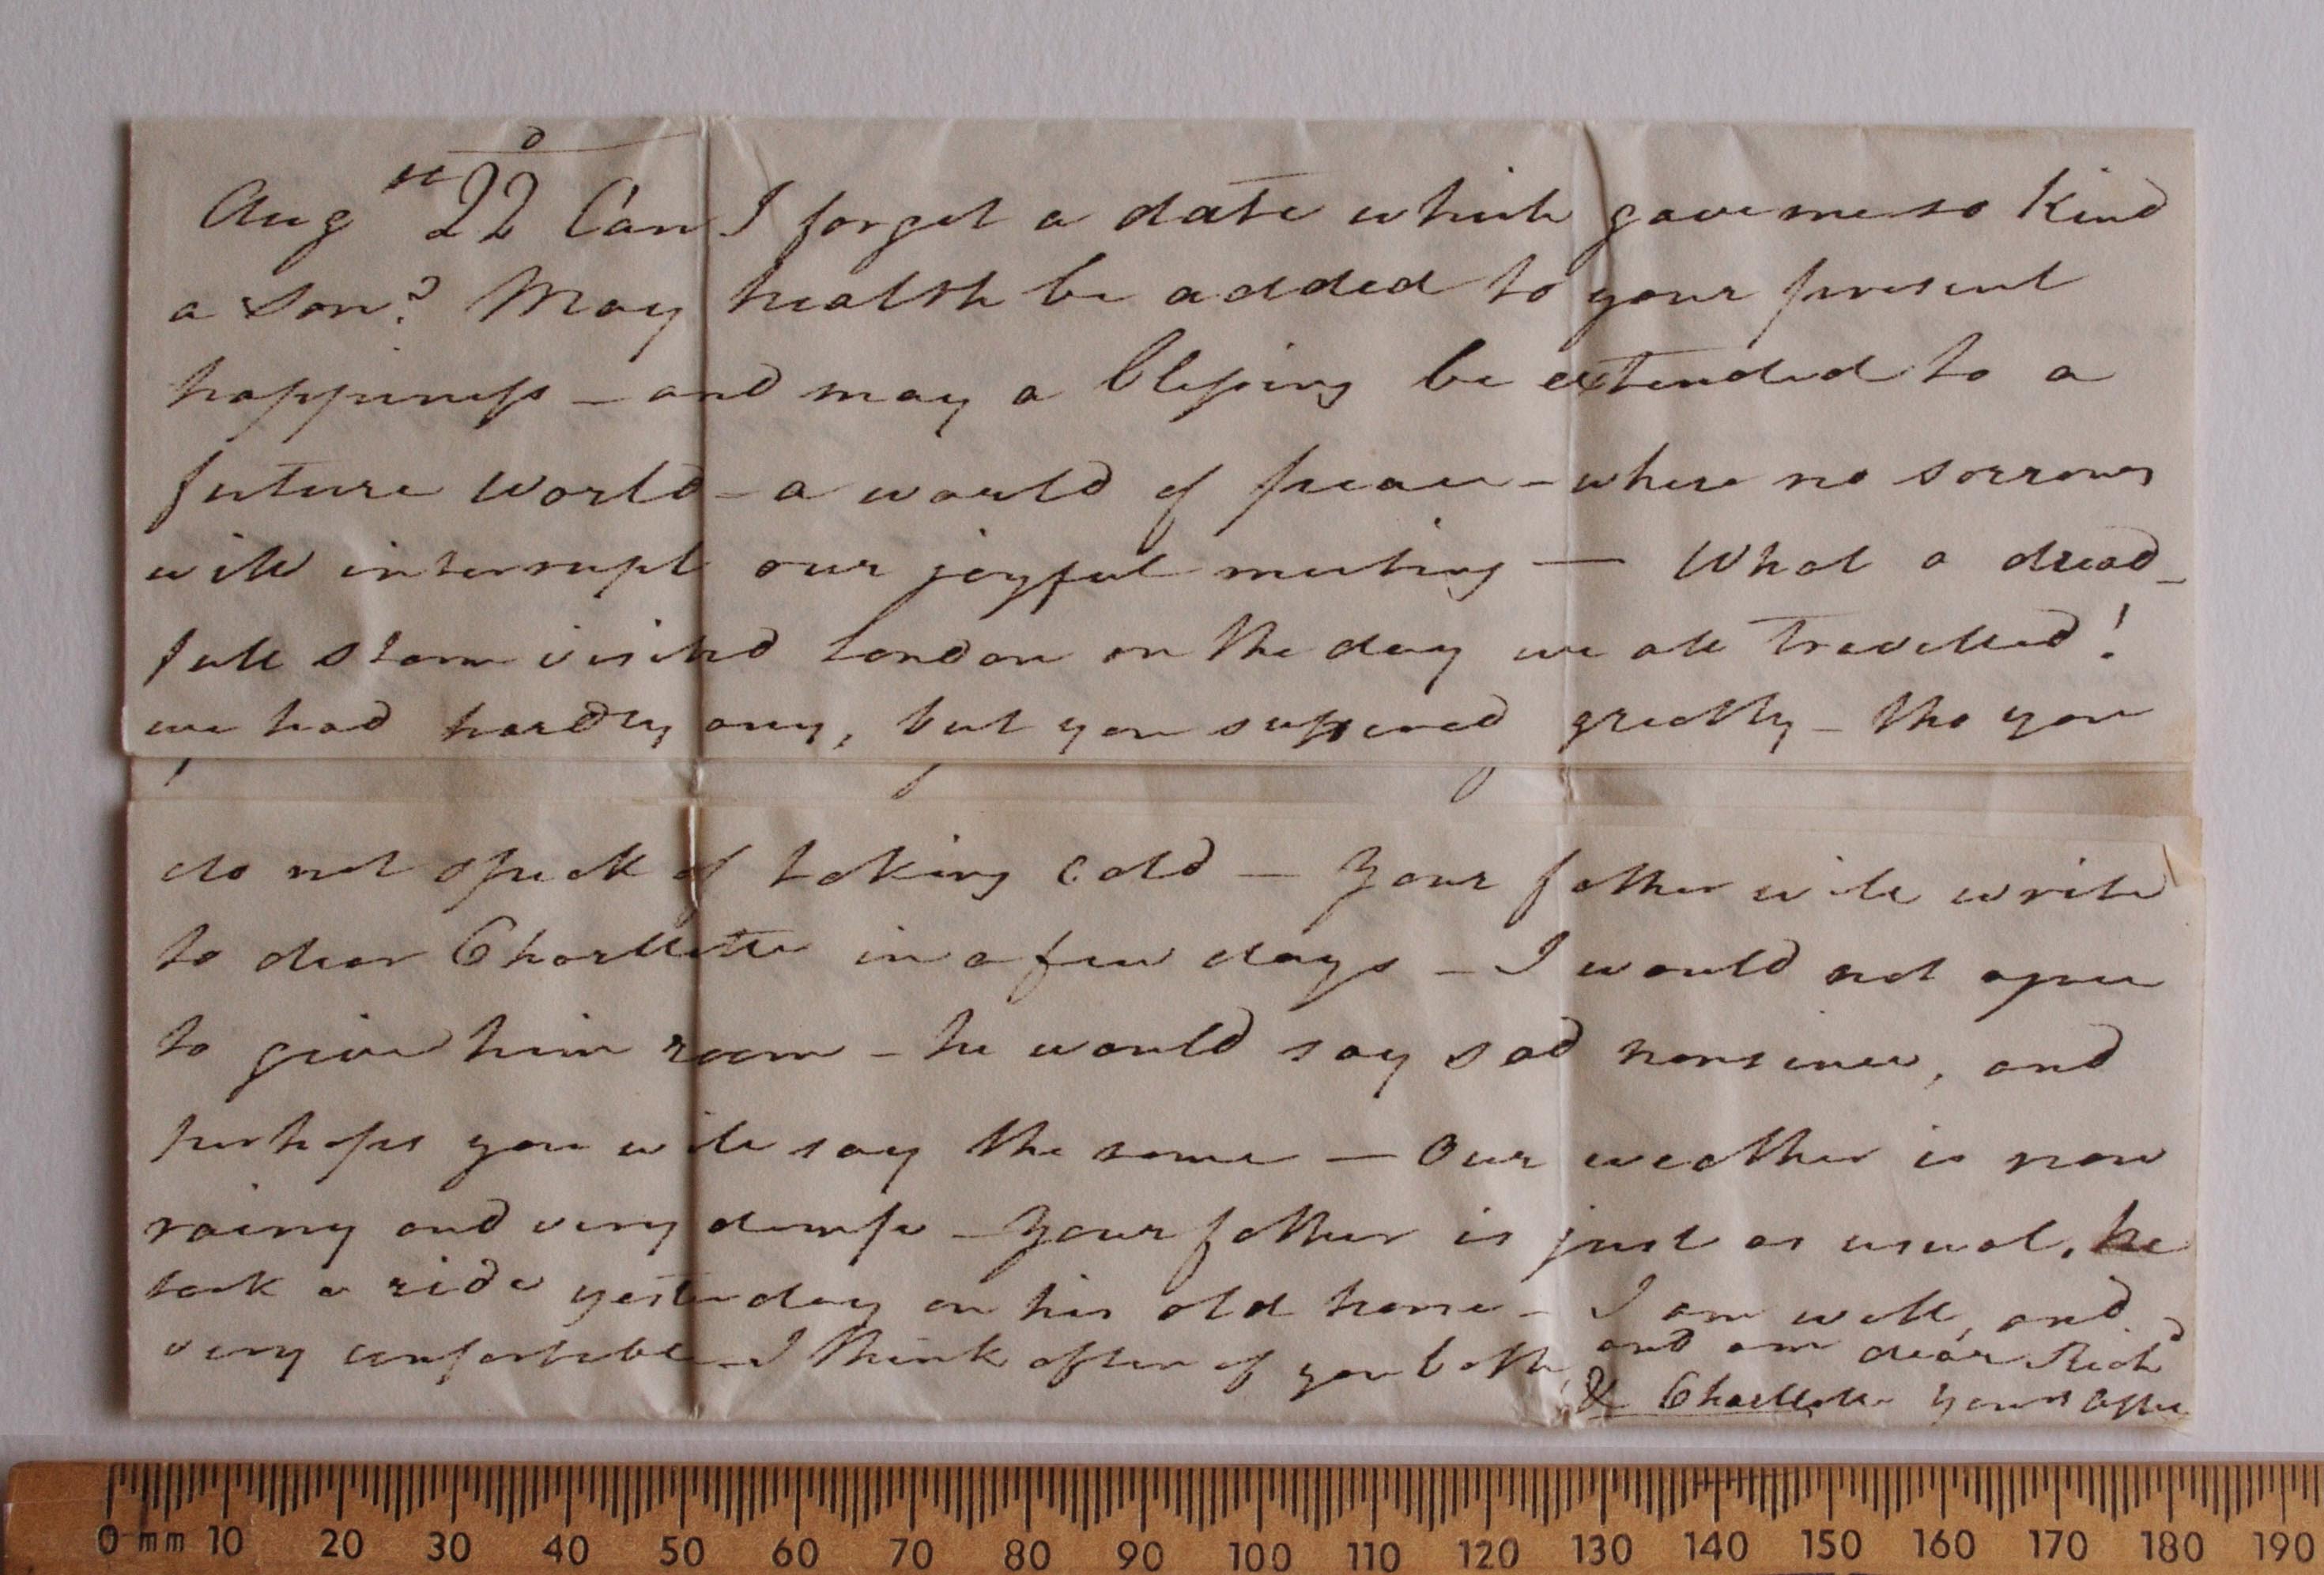 Augst 22d Can I forget a date which gave me so kind
a son? May health be added to your present
happiness - and may a blessing be extended to a
future world - a world of peace - where no sorrows
will interrupt our joyful meeting — What a dread-
full storm visited London on the day we all travelled!
we had hardly any, but you suffered greatly - tho you
do not speak of taking cold — Your father will write
to dear Charllotte in a few days - I would not agree
to give him room - he would say sad nonsince, and
perhaps you will say the same — Our weather is now
rainy and very damp - Your father is just as usual, he
took a ride yesterday on his old horse - I am well, and
very comfortable - I think often of you both, and am dear Richd
& Charllotte yours affec
0 mm 10 20 30 40 50 60 70 80 90 100 110 120 130 140 150 160 170 180 190